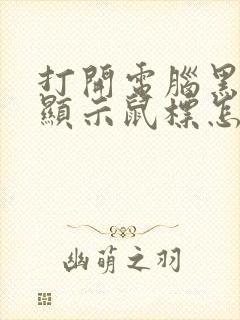 打開電腦黑
顯示鼠標怎
幽萌之羽